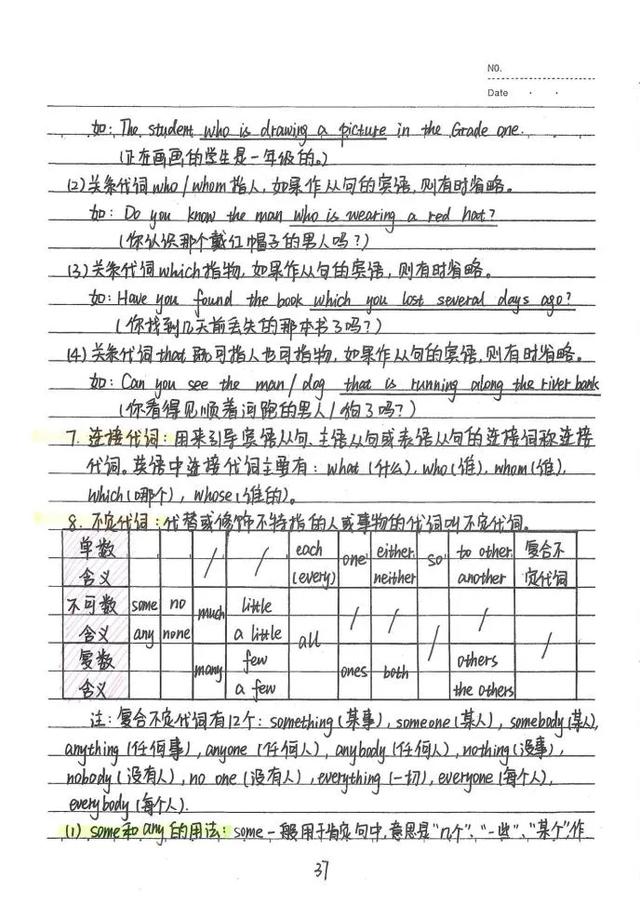 NO.
Date . .
如: The student who is drawing a picture in the Grade one.
(正在画画的学生是一年级的。)
(2)关系代词who/whom指人,如果作从句的宾语,则有时省略。
如: Do you know the man who is wearing a red hat?
(你认识那个戴红帽子的男人吗?)
(3)关系代词which指物,如果作从句的宾语,则有时省略。
如: Have you found the book which you lost several days ago?
(你找到几天前丢失的那本书了吗?)
(4)关系代词that既可指人也可指物,如果作从句的宾语,则有时省略。
如: Can you see the man/dog that is running along the river bank
(你看得见顺着河跑的男人/狗了吗?)
7. 连接代词:用来引导宾语从句、主语从句或表语从句的连接词称连接
代词。英语中连接代词主要有: what (什么), who(谁), whom(谁),
which(哪个), whose(谁的)。
8. 不定代词:代替或修饰不特指的人或事物的代词叫不定代词。
单数 / / each one either so to other 复合不
含义 (every) neither another 定代词
不可数 some no much little all / / / / /
含义 any none a little
复数 many few ones both others
含义 a few the others
注:复合不定代词有12个: something(某事), someone(某人), somebody(某人),
anything(任何事), anyone(任何人), anybody(任何人), nothing(没事),
nobody(没有人), no one(没有人), everything(一切), everyone(每个人),
everybody(每个人).
(1) some和any的用法: some一般用于肯定句中,意思是"几个"、"一些"、"某个"作
37